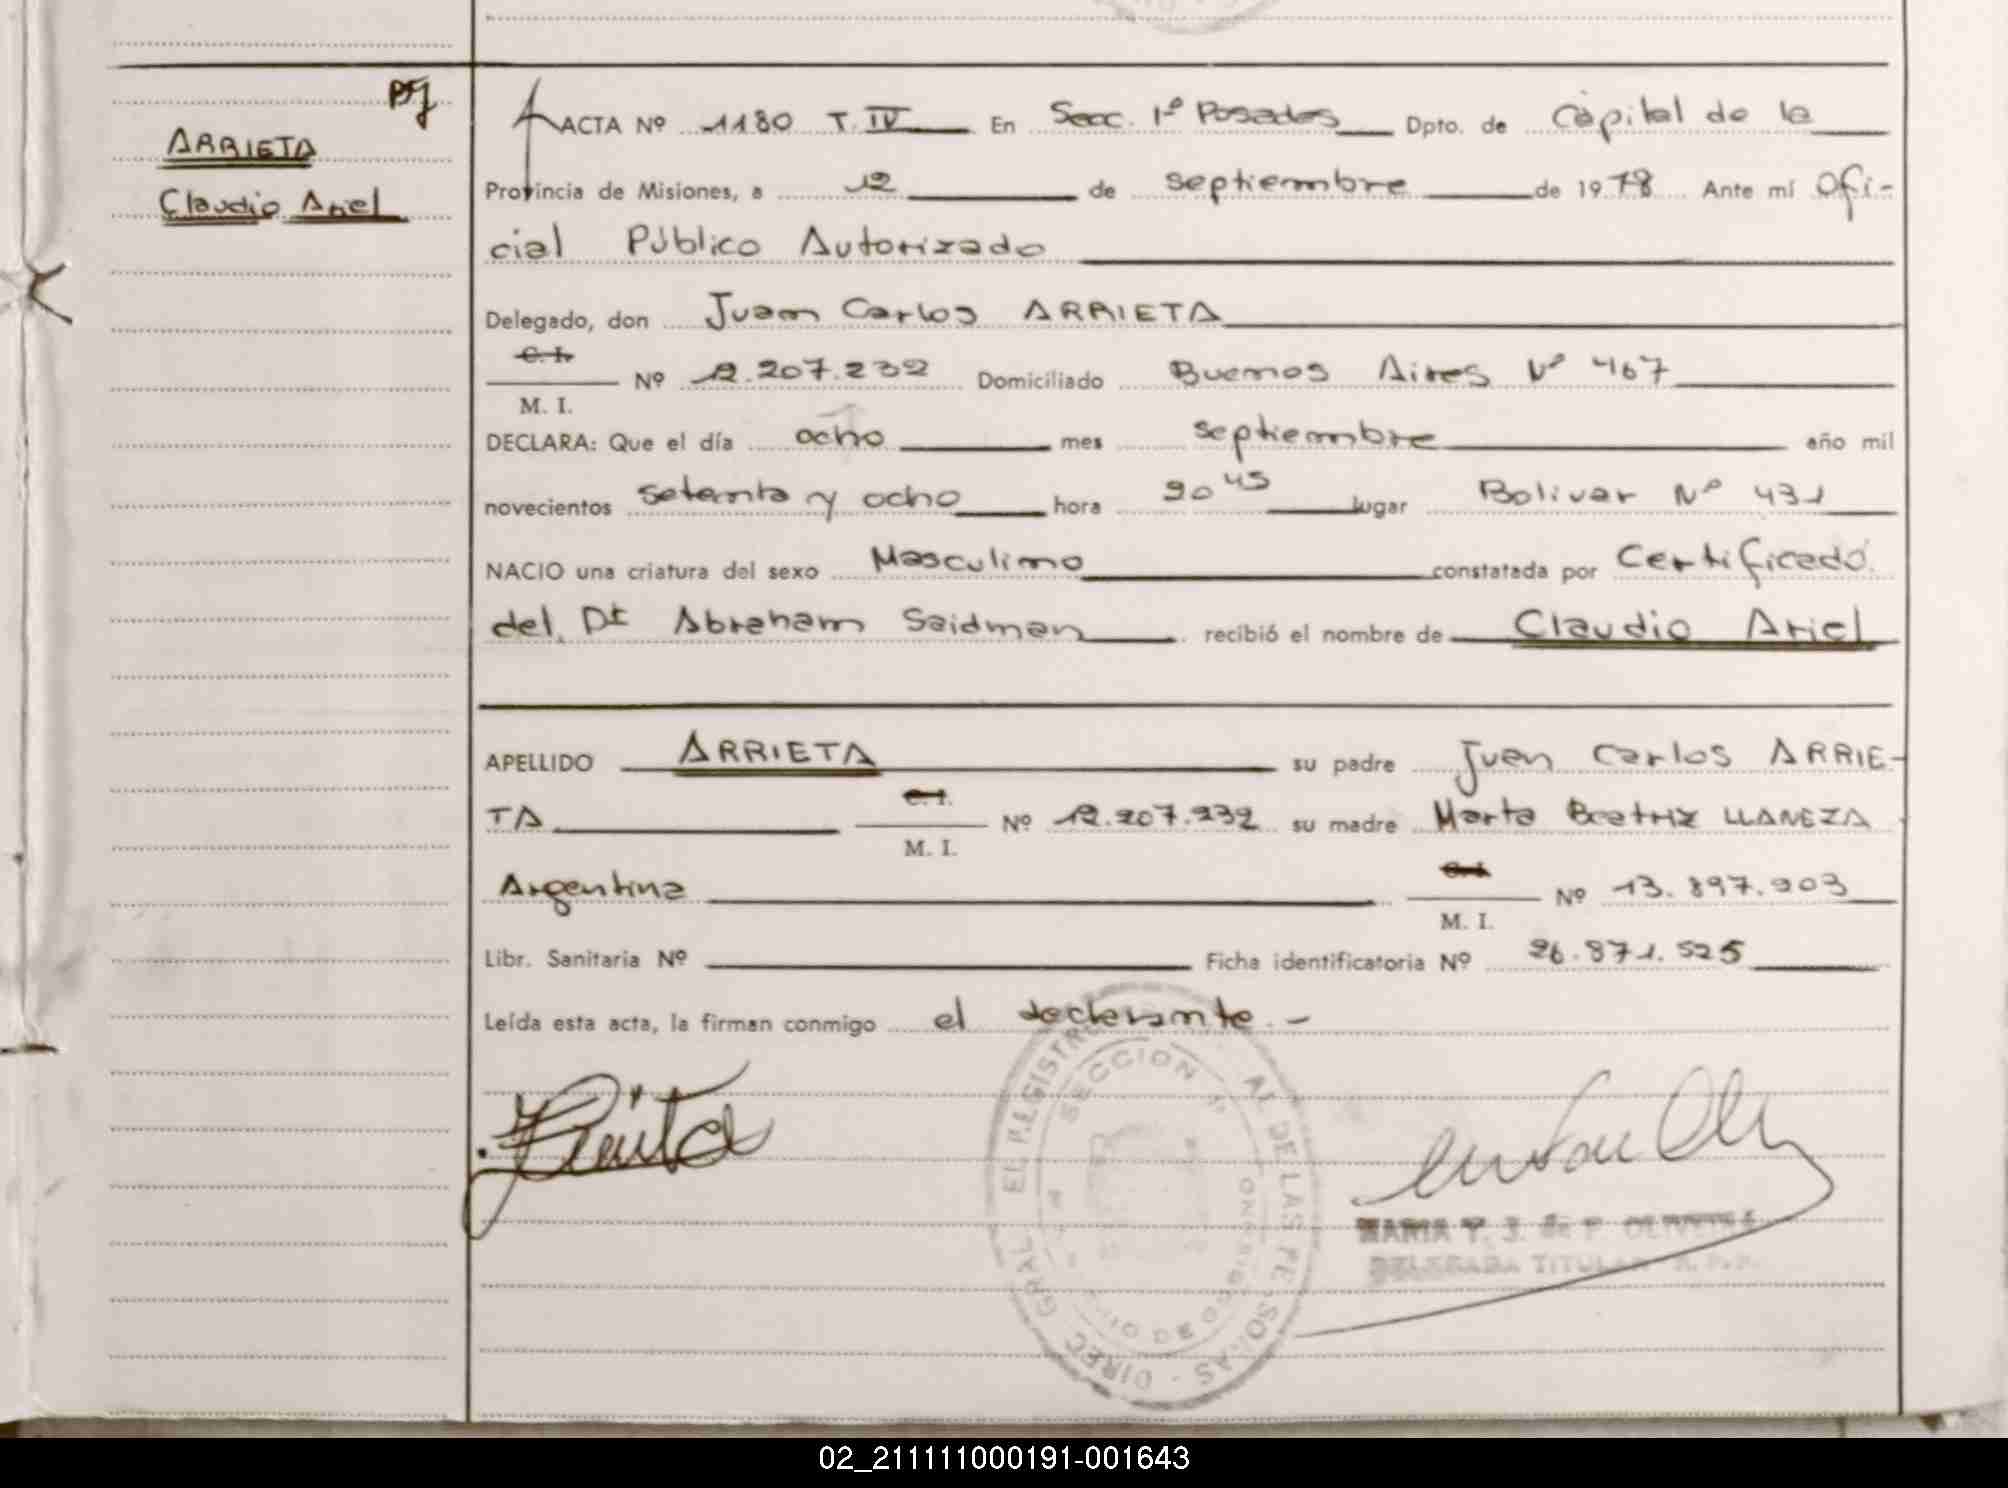 ARRIETA
Claudio Ariel
ACTA Nº 1180 T. IV En Secc. 1ª Posadas Dpto. de Capital de la
Provincia de Misiones, a 12 de septiembre de 1978 Ante mí Ofi-
cial Público Autorizado
Delegado, don Juan Carlos ARRIETA
C. I.
Nº 12.207.232 Domiciliado Buenos Aires Nº 467
M. I.
DECLARA: Que el día ocho mes septiembre año mil
novecientos setenta y ocho hora 20 45 lugar Bolivar Nº 431
NACIO una criatura del sexo Masculino constatada por Certificado
del Dr Abraham Saidman recibió el nombre de Claudio Ariel
APELLIDO ARRIETA su padre Juan Carlos ARRIE-
C. I.
TA Nº 12.207.232 su madre Marta Beatriz LLANEZA
M. I.
C. I.
Argentina Nº 13.897.903
M. I.
Libr. Sanitaria Nº Ficha identificatoria Nº 26.871.525
Leída esta acta, la firman conmigo el declarante. -
SECCION 1ª
DIREC. GRAL DE LAS PERSONAS
MARIA
DELEGADA TITULAR
02_211111000191-001643